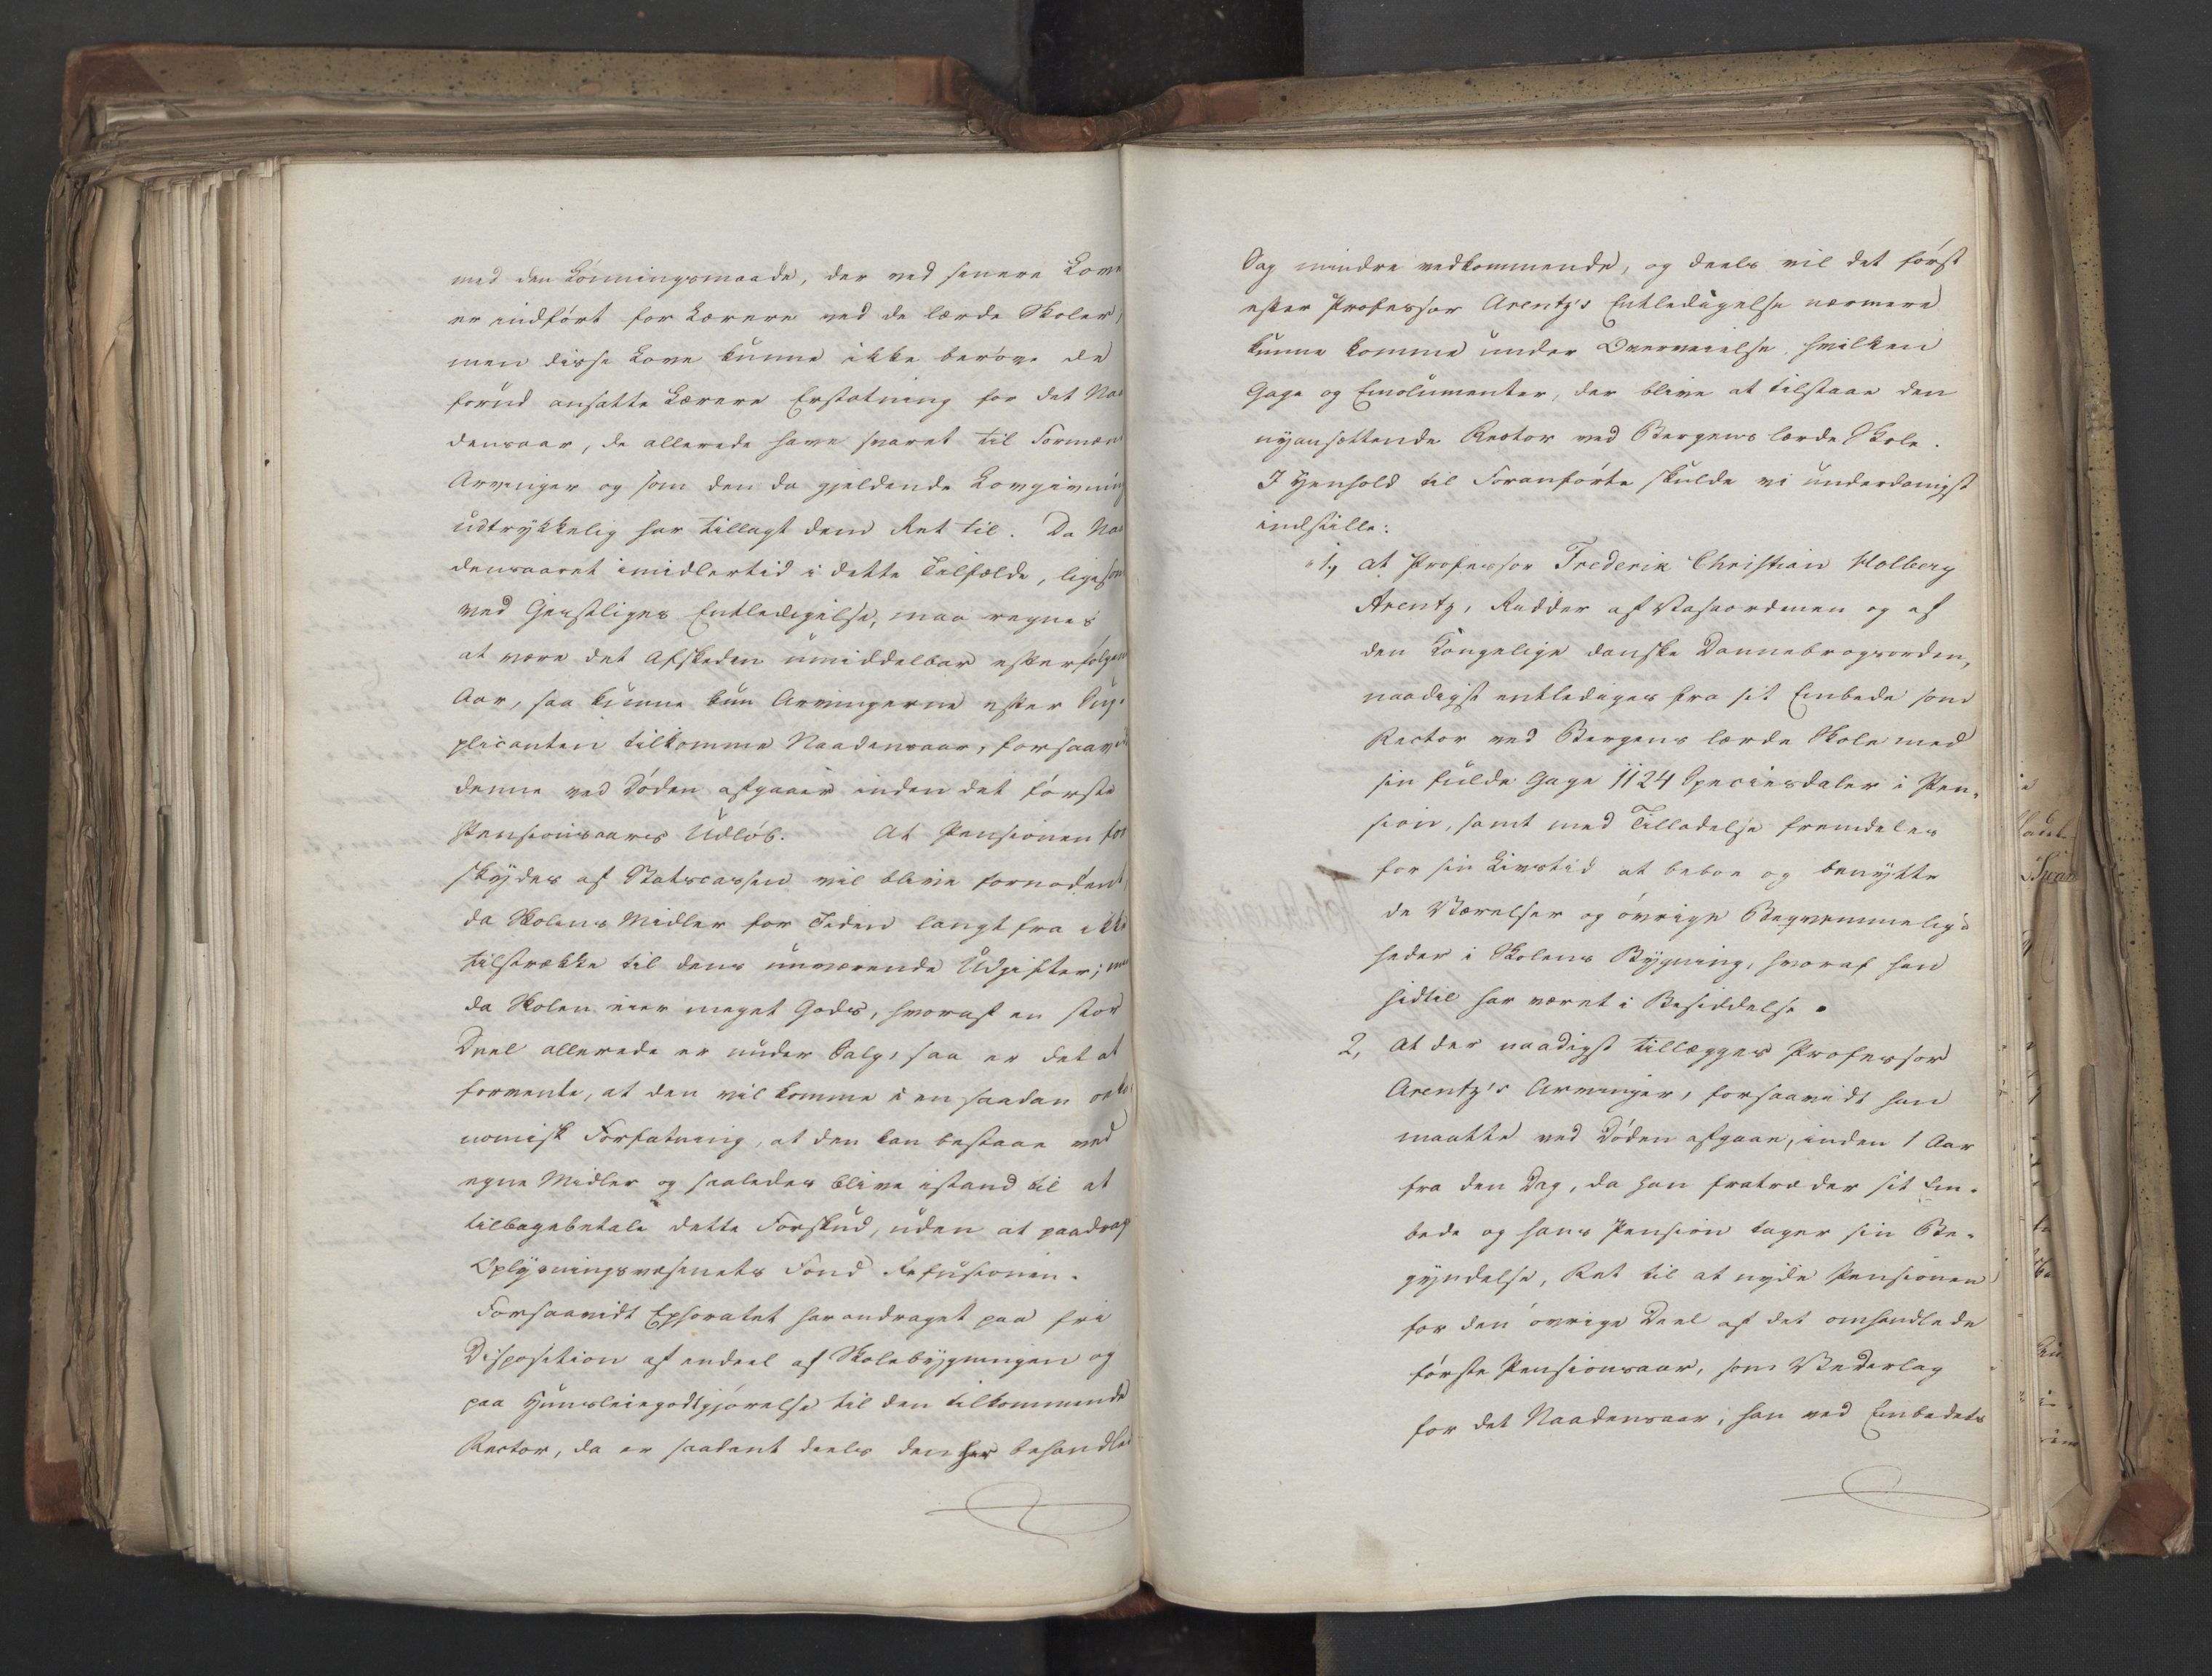 med den Lønningsmaade, der ved senere Love
er indført for Lærere ved de lærde Skoler,
men disse Love kunne ikke berøve de
forud ansatte Lærere Erstatning for det Naa
densaar, de allerede have svaret til Formæn
Arvinger og som den da gjeldende Lovgivning
udtrykkelig har tillagt dem Ret til. Da Naa
densaaret imidlertid i dette Tilfælde, ligesom
ved Geistliges Entledigelse, maa regnes
at være det Afskeden umiddelbar efterfølgen
Aar, saa kunne kun Arvingerne efter Sup-
plicanten tilkomme Naadensaar, forsaavidt
denne ved Døden afgaaer inden det første
Pensionsaars Udløb. At Pensionen for
skydes af Statscassen vil blive fornødent,
da Skolens Midler for Tiden langt fra ikke
tilstrække til dens nuværende Udgifter; men
da Skolen eier meget Gods, hvoraf en stor
Deel allerede er under Salg, saa er det at
formente, at den vil komme i en saadan oeko
nomisk Forfatning, at den kan bestaae ved
egne Midler og saaledes blive istand til at
tilbagebetale dette Forskud, uden at paadrage
Oplysningsvæsenets Fond Refusionen.
Forsaavidt Ephoratet har andraget paa fri
Disposition af endeel af Skolebygningen og
paa Huusleiegodtgjørelse til den tilkommende
Rector, da er saadant deels den her behandlede
Sag mindre vedkommende, og deels vil det først
efter Professor Arentz's Entledigelse nærmere
kunne komme under Overveielse, hvilken
Gage og Emolumenter, der blive at tilstaae den
nyansættende Rector ved Bergens lærde Skole.
I Henhold til Foranførte skulde vi underdanigst
indstille:
1, at Professor Frederik Christian Holberg
Arentz, Ridder af Vasaordenen og af
den Kongelige danske Dannebrogsorden,
naadigst entlediges fra sit Embede som
Rector ved Bergens lærde Skole med
sin fulde Gage 1124 Speciesdaler i Pen-
sion, samt med Tilladelse fremdeles
for sin Livstid at beboe og benytte
de Værelser og øvrige Beqvemmelig-
heder i Skolens Bygning, hvoraf han
hidtil har været i Besiddelse.
2, At der naadigst tillægges Professor
Arentz's Arvinger, forsaavidt han
maatte ved Døden afgaae, inden 1 Aar
fra den Dag, da han fratræder sit Em-
bede og hans Pension tager sin Be-
gyndelse, Ret til at nyde Pensionen
for den øvrige Deel af det omhandlede
første Pensionsaar, som Vederlag
for det Naadensaar, han ved Embedets